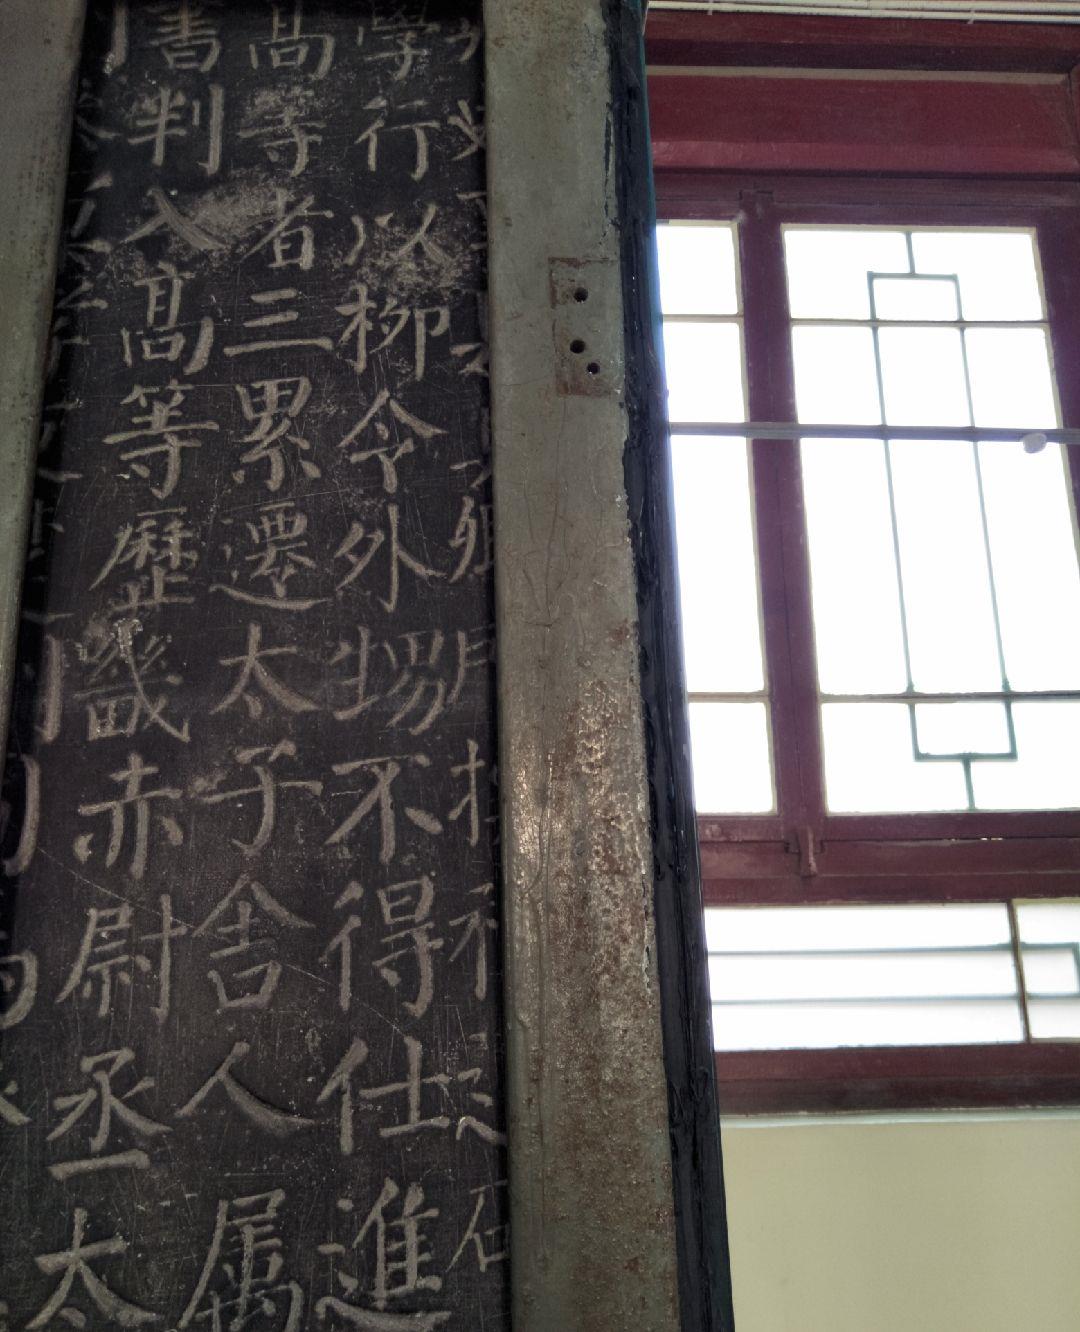 學行以柳令外甥不得仕進
高等者三累遷太子舍人属
書判入高等歷畿赤尉丞太